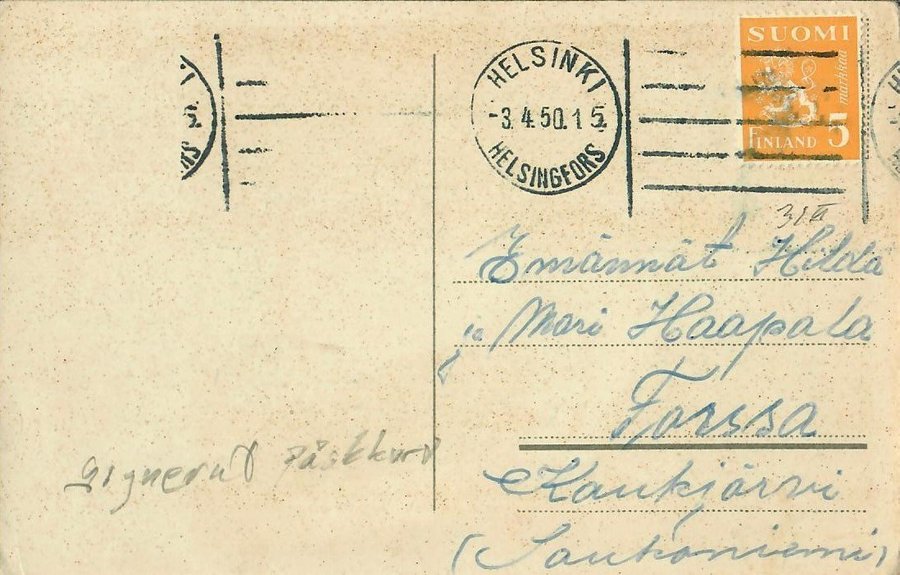 SUOMI
markkaa
FINLAND 5
HELSINKI
-3.4.50.15
HELSINGFORS
Emännät Hilda
ja Mari Haapala
Forssa
Kaukjärvi
(Saukoniemi)
Signerat Påskkort